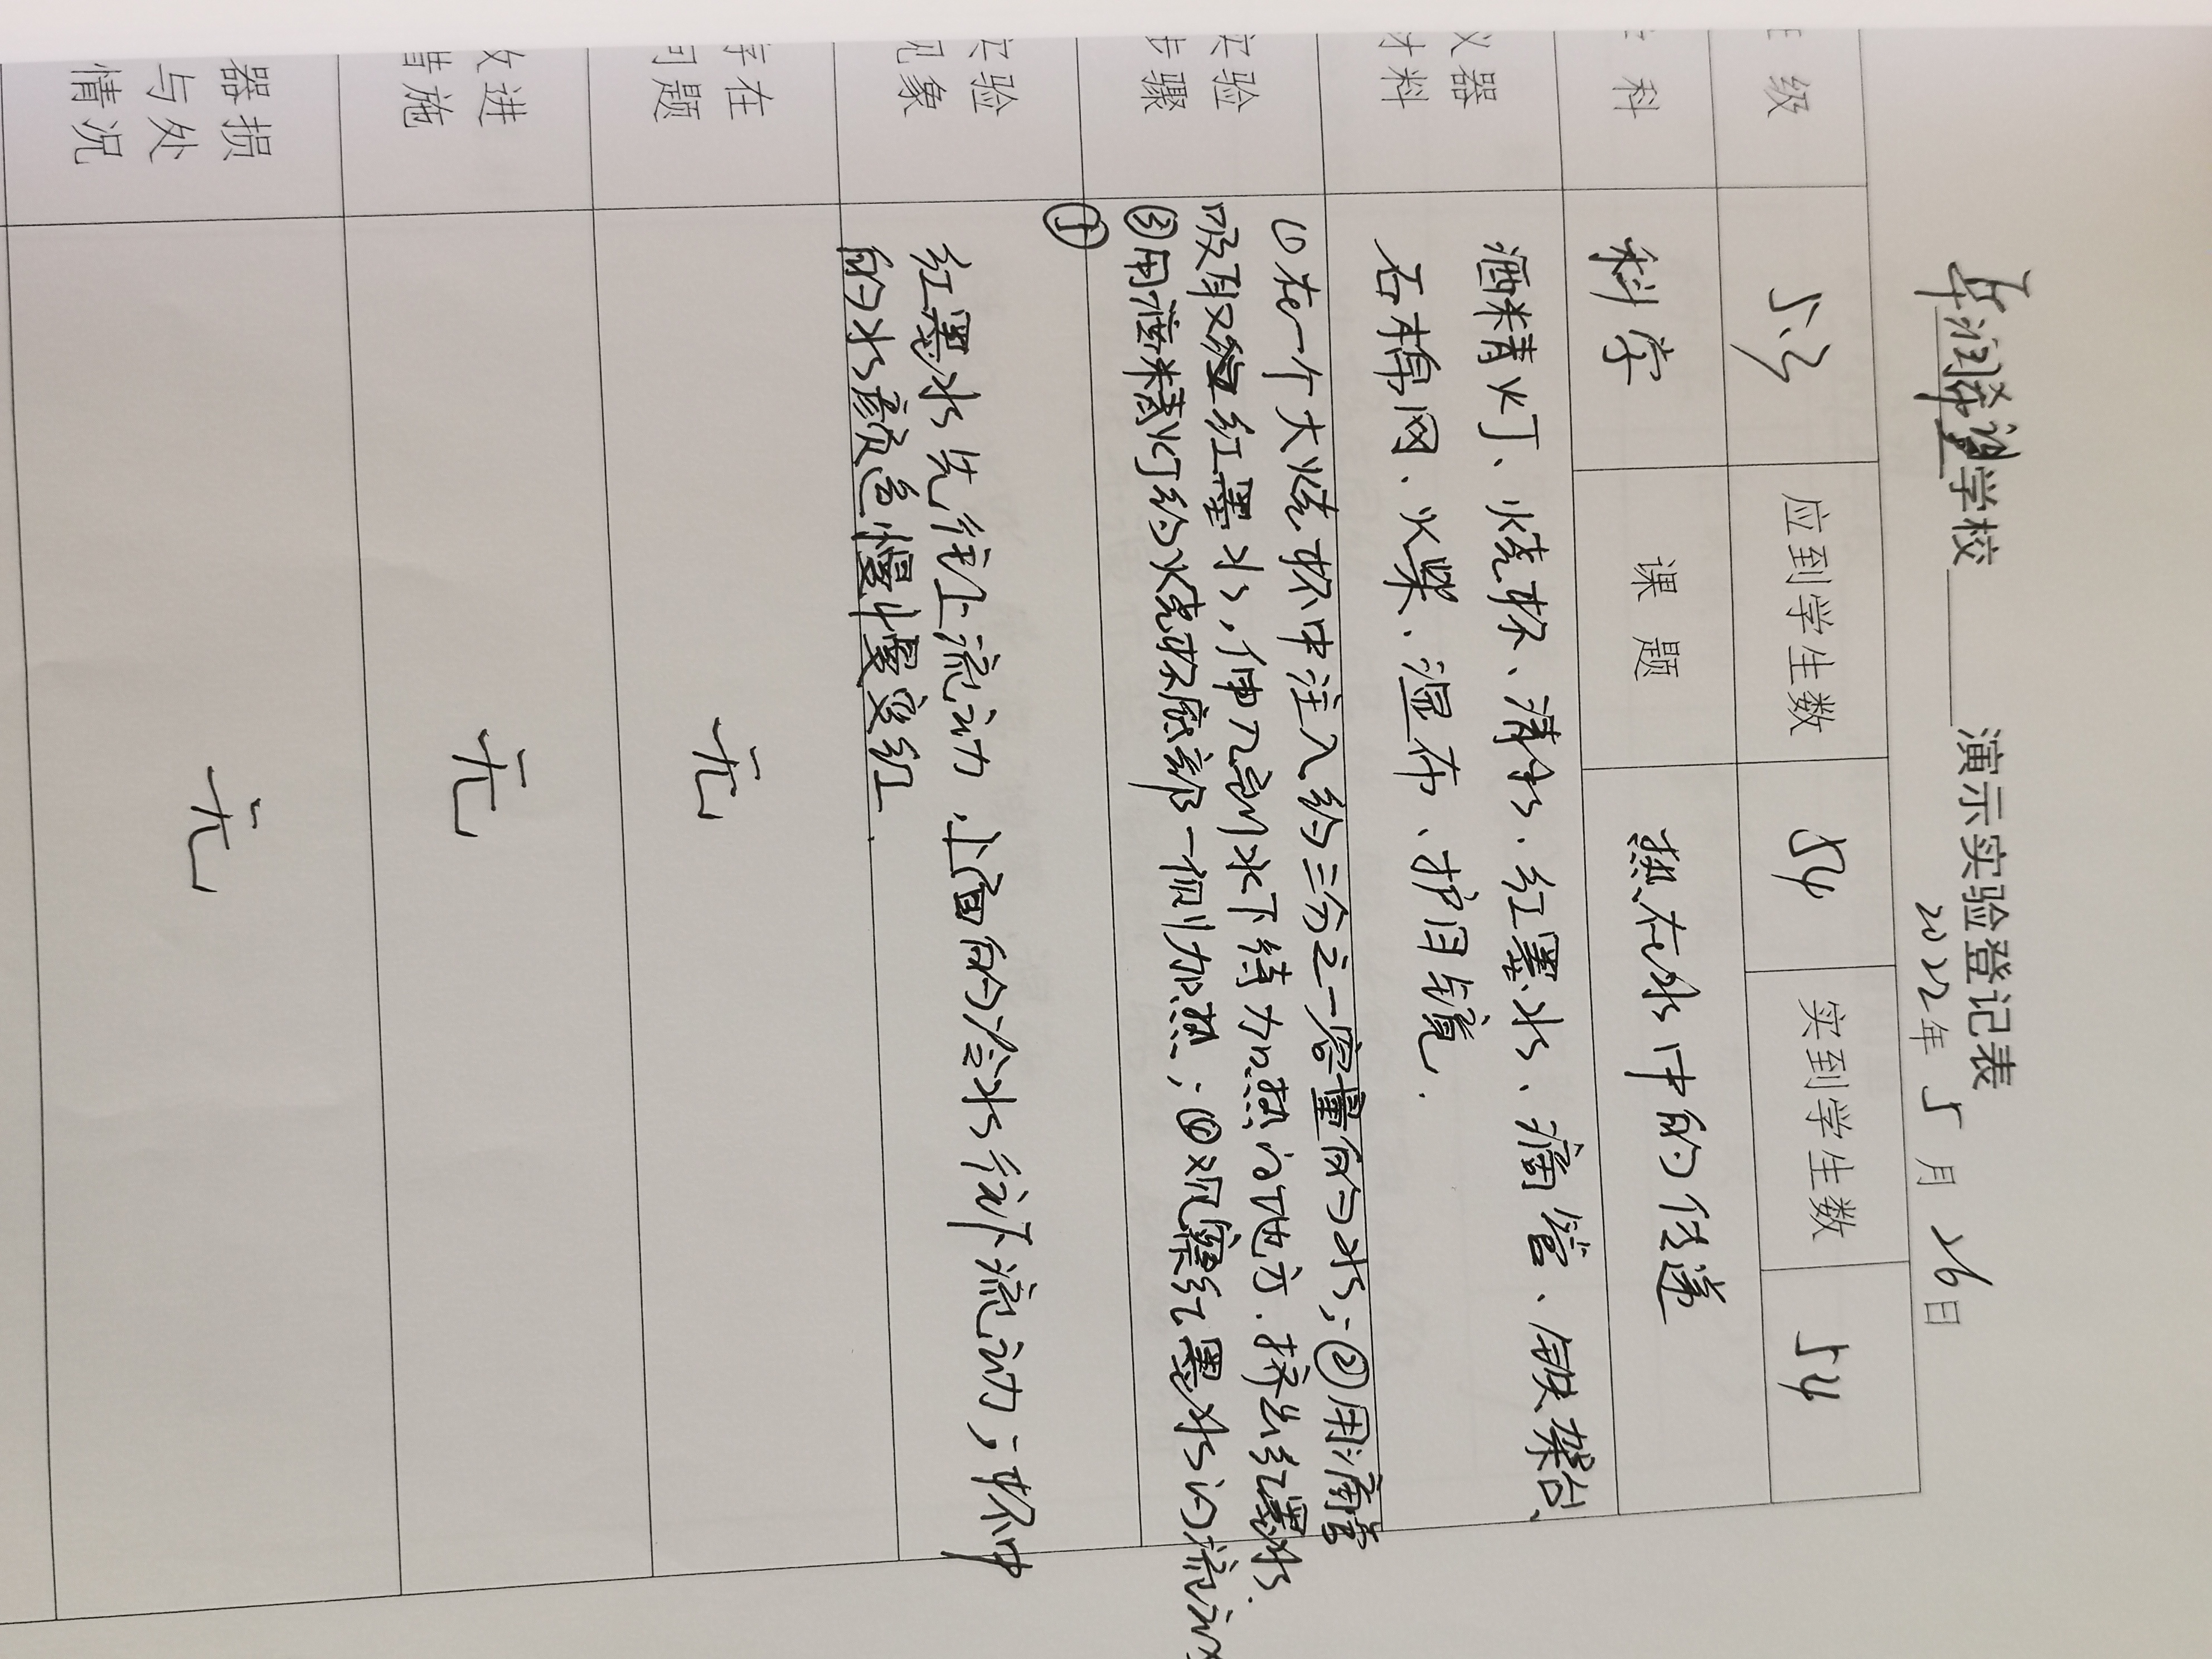 学校 演示实验登记表
2022年5月26日
级 5.3 应到学生数 54 实到学生数 54
科 科学 课题 热在水中的传递
仪器 酒精灯、烧杯、清水、红墨水、滴管、铁架台、
材料 石棉网、火柴、湿布、护目镜.
实验 ①在一个大烧杯中注入约三分之一容量的水；②用滴管
步骤 吸取红墨水，伸入到水下待加热的地方.挤出红墨水.
③用酒精灯给烧杯底部一侧加热；④观察红墨水的流动
实验 红墨水先往上流动.上面的冷水往下流动；杯中
现象 的水颜色慢慢变红.
存在 无
问题
改进 无
措施
器损 无
与处
情况